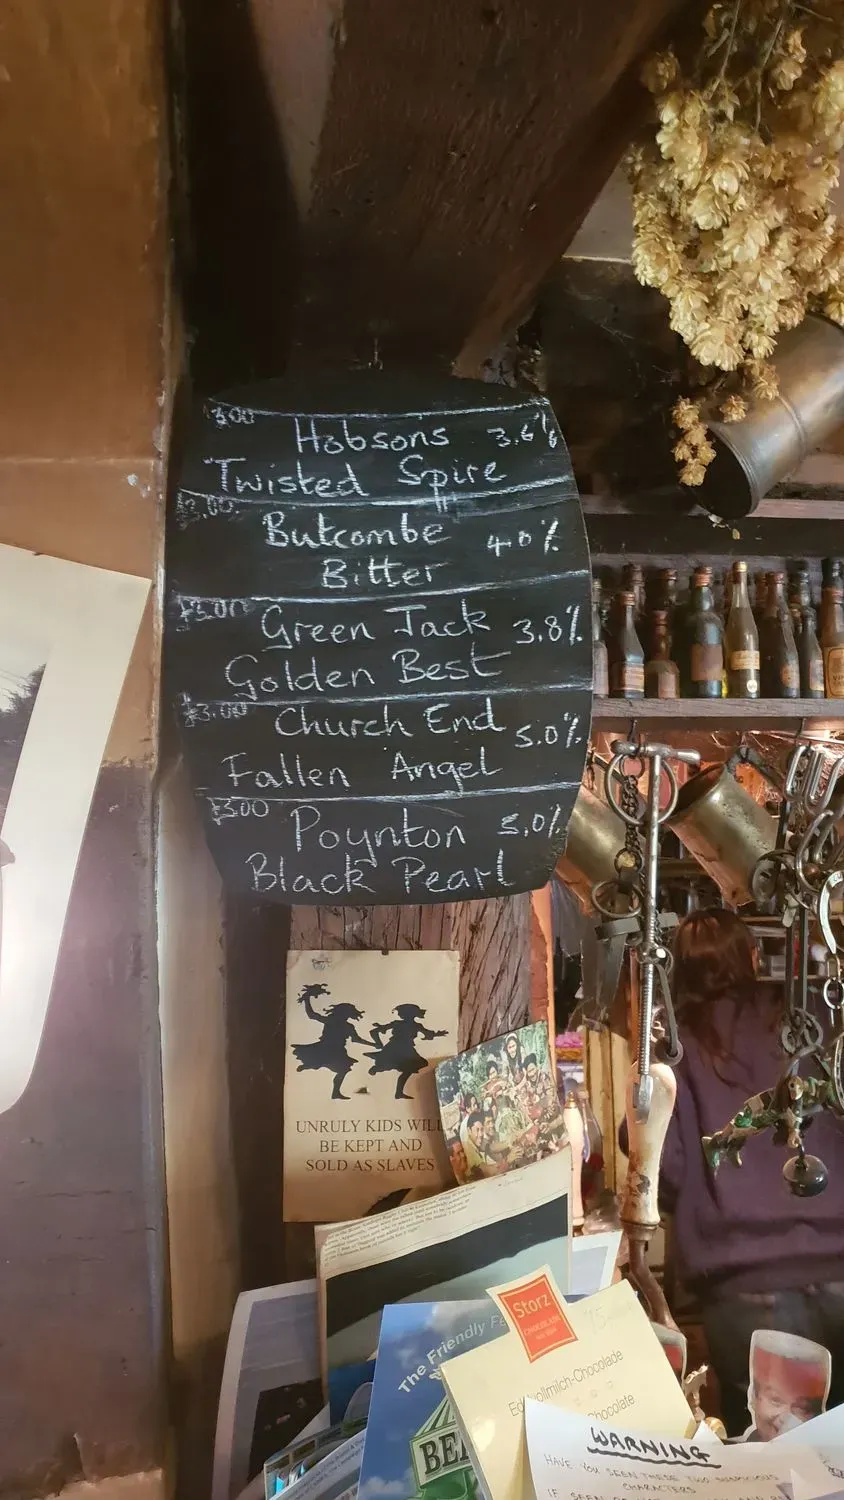 £3.00
Hobsons 3.6%
Twisted Spire
£3.00
Butcombe 4.0%
Bitter
£3.00
Green Jack 3.8%
Golden Best
£3.00
Church End 5.0%
Fallen Angel
£3.00
Poynton 5.0%
Black Pearl
UNRULY KIDS WILL
BE KEPT AND
SOLD AS SLAVES
The Friendly
BE
Storz
CHOCOLADE
Vollmilch-Chocolade
Chocolate
WARNING
HAVE YOU SEEN THESE TWO SUSPICIOUS
CHARACTERS
IF SEEN